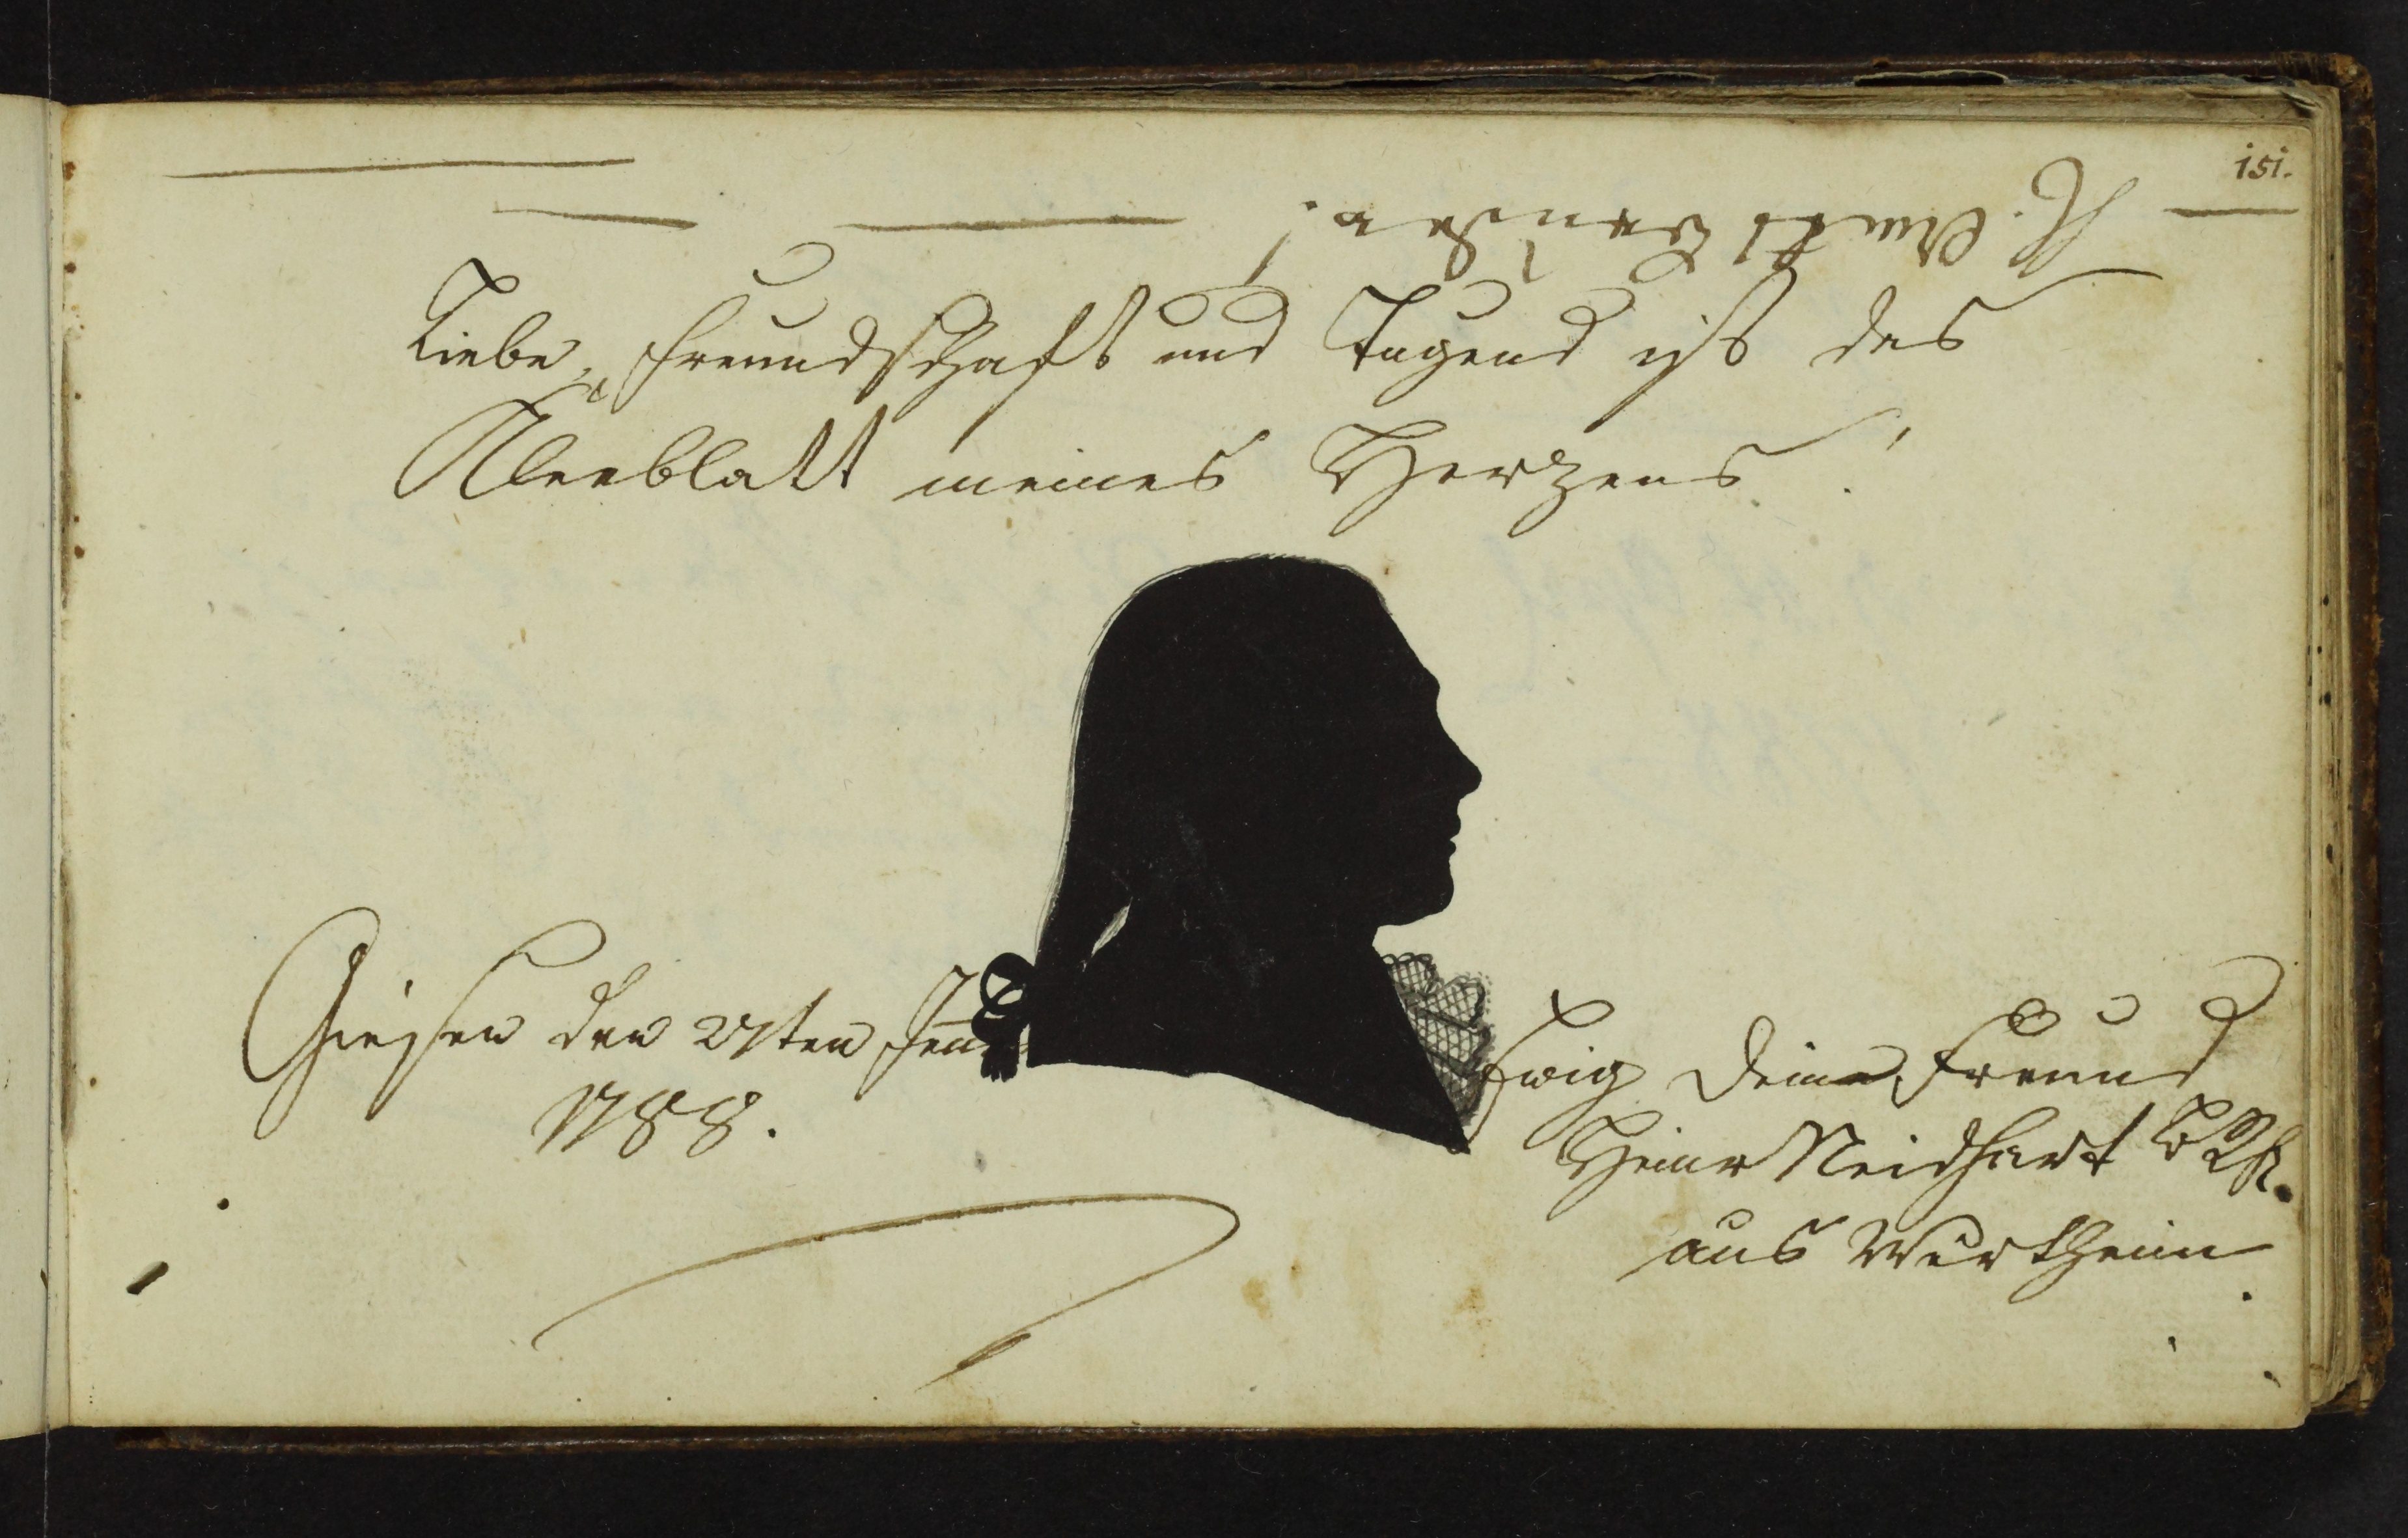 151.
Liebe, Freundschaft und Tugend ist das
Kleeblatt meines Herzens!
Giesen den 27ten Jen
1788.
Ewig Dein Freund
Heinr Neidhart
aus Wertheim